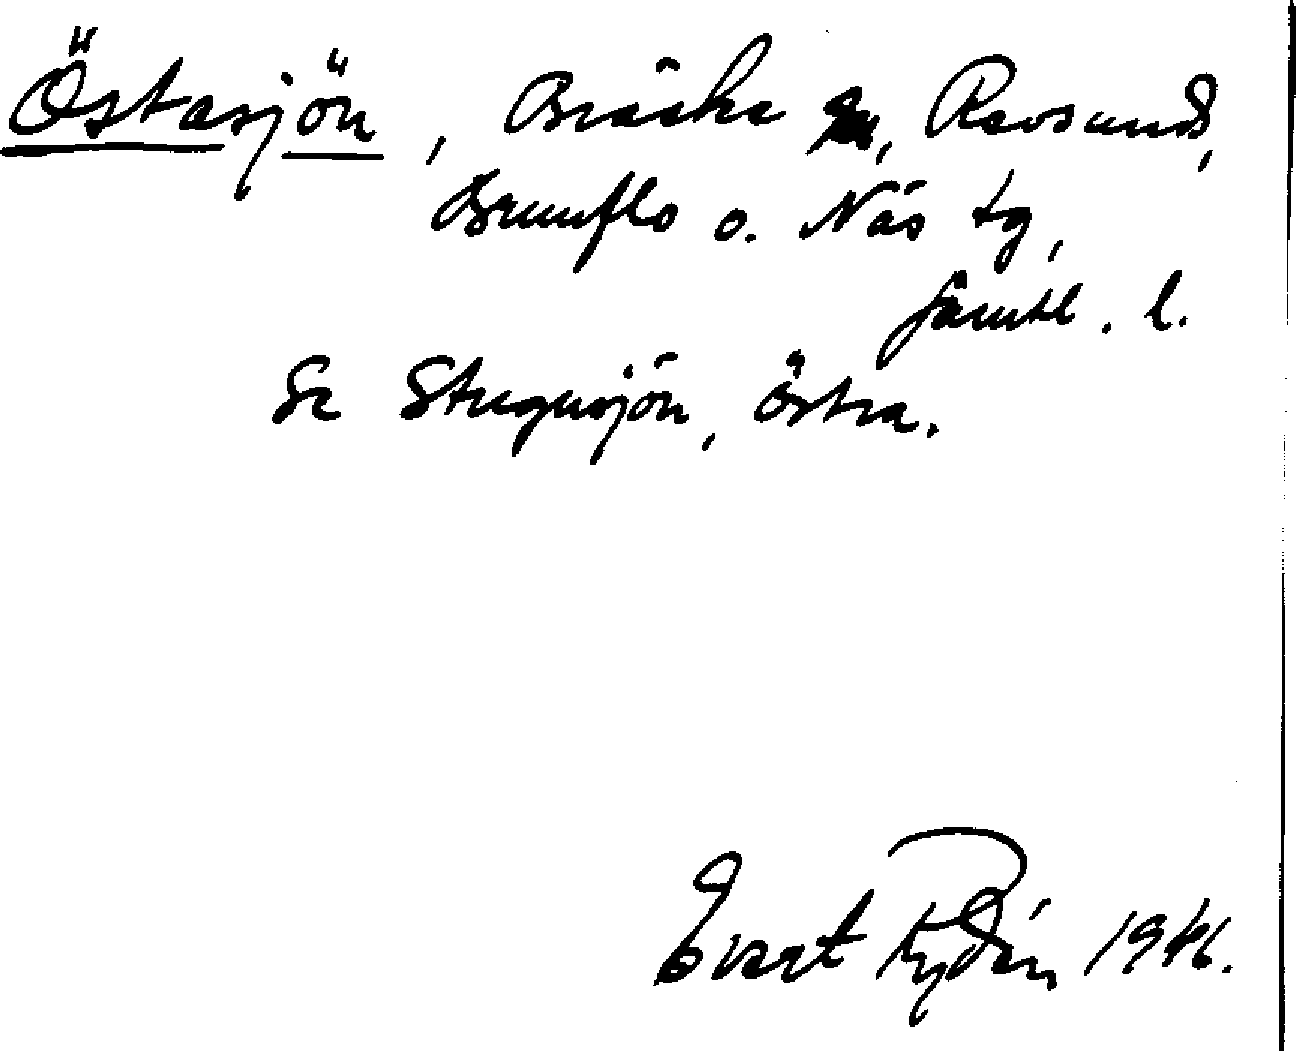 Östasjön, Bräcke, Revsunds,
Brunflo o. Näs tg,
Jämtl. l.
Se Stugusjön, Östra.
Evert Rydén, 1946.